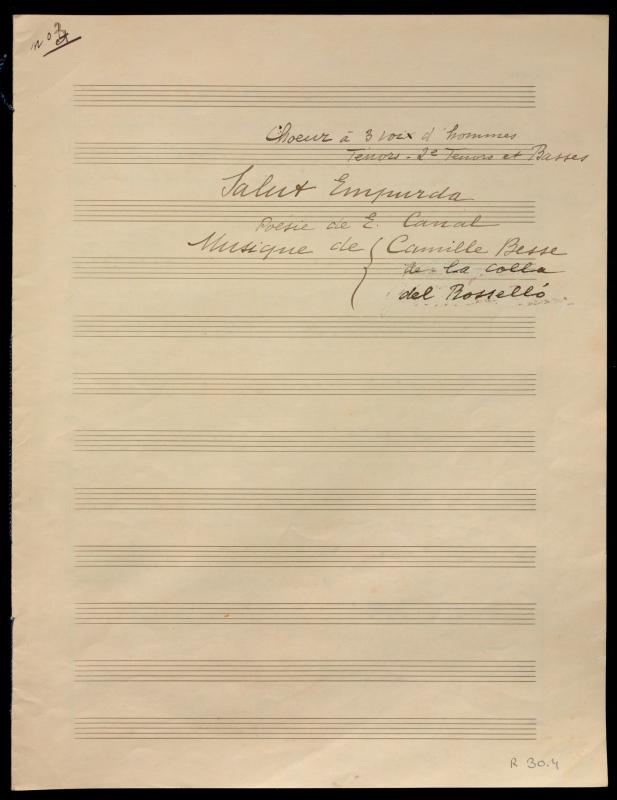 nº 3
Choeur à 3 voix d'hommes
Tenors - 2e Tenors et Basses
Salut Empurda
Poésie de E. Canal
Musique de { Camille Besse
de la colla
del Rosselló.
R 30.4